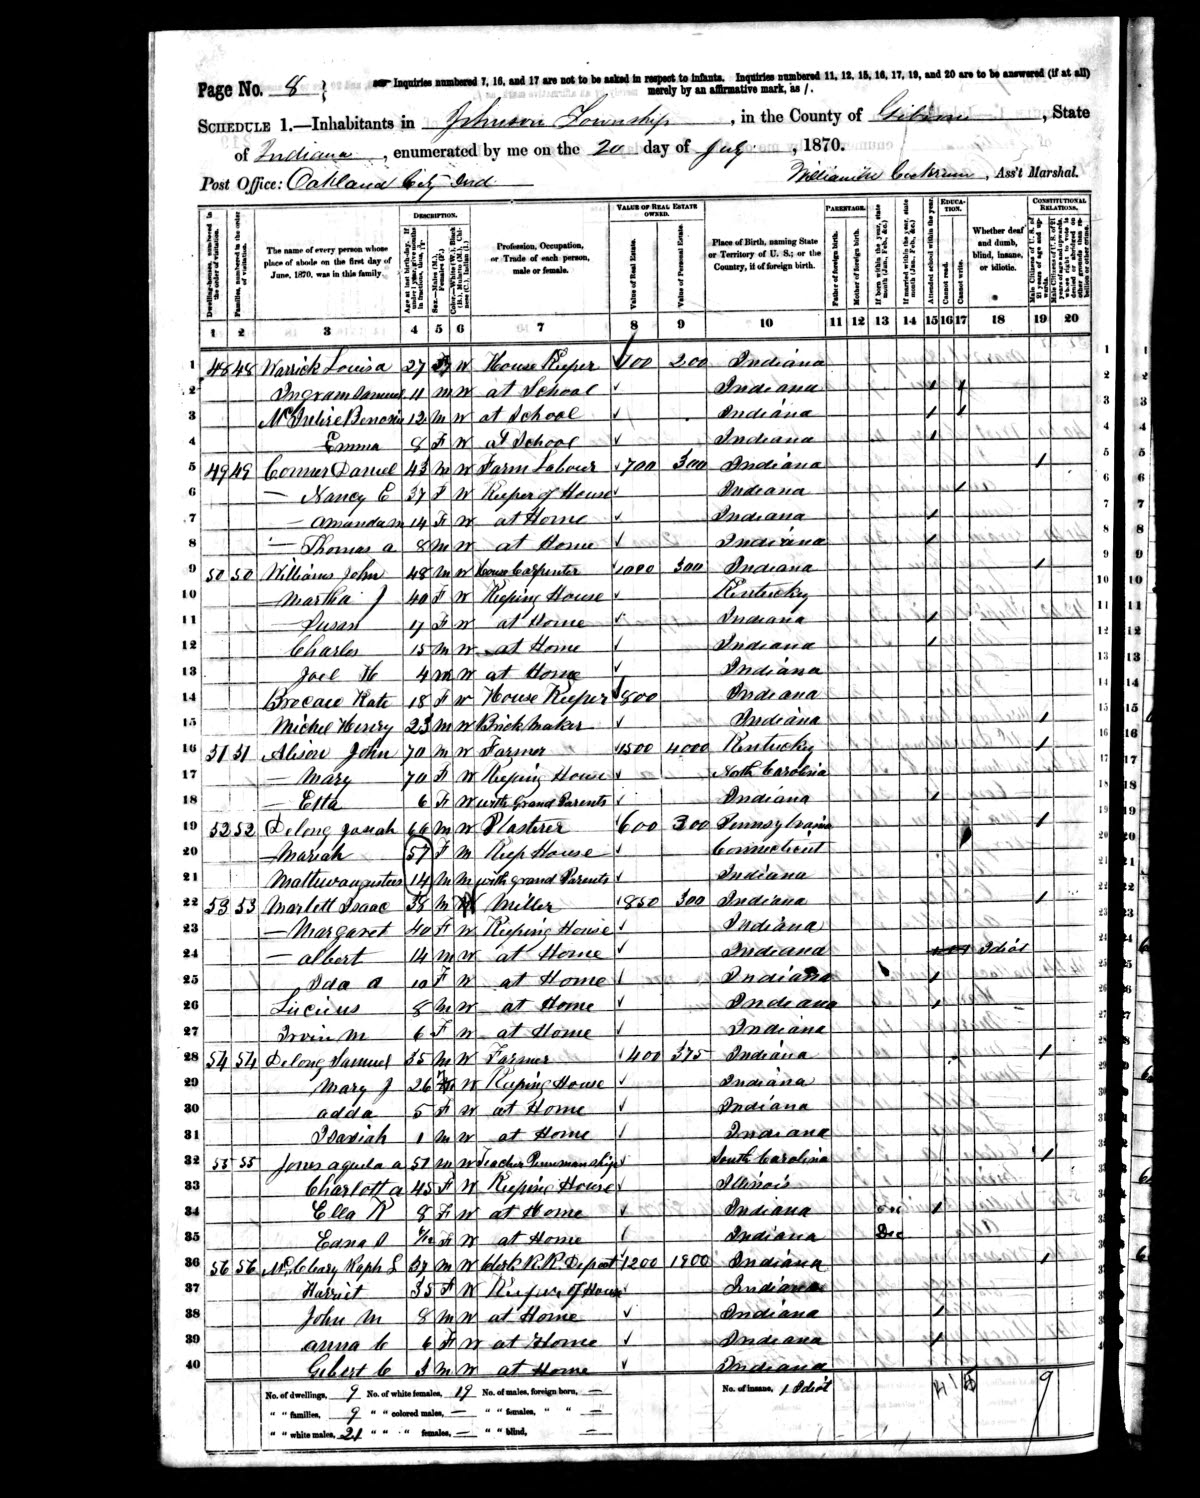 Page No. 8 Inquiries numbered 7, 16, and 17 are not to be asked in respect to infants. Inquiries numbered 11, 12, 15, 16, 17, 19, and 20 are to be answered (if at all)
merely by an affirmative mark, as /.
SCHEDULE 1.—Inhabitants in Johnson Township, in the County of Gibson, State
of Indiana, enumerated by me on the 20 day of July, 1870.
Post Office: Oakland City Ind. Cockrum, Ass't Marshal.
Dwelling-houses, numbered in the order of visitation.
Families, numbered in the order of visitation.
The name of every person whose place of abode on the first day of June, 1870, was in this family.
DESCRIPTION.
Age at last birth-day. If under 1 year, give months in fractions, thus,
Sex.—Males (M.), Females (F.).
Color.—White (W.), Black (B.), Mulatto (M.), Chinese (C.), Indian (I.).
Profession, Occupation, or Trade of each person, male or female.
VALUE OF REAL ESTATE OWNED.
Value of Real Estate.
Value of Personal Estate.
Place of Birth, naming State or Territory of U. S.; or the Country, if of foreign birth.
PARENTAGE.
Father of foreign birth.
Mother of foreign birth.
If born within the year, state month (Jan., Feb., &c.)
If married within the year, state month (Jan., Feb., &c.)
Attended school within the year.
EDUCATION.
Cannot read.
Cannot write.
Whether deaf and dumb, blind, insane, or idiotic.
CONSTITUTIONAL RELATIONS.
Male Citizens of U. S. of 21 years of age and upwards.
Male Citizens of U. S. of 21 years of age and upwards, whose right to vote is denied or abridged on other grounds than rebellion or other crime.
1 2 3 4 5 6 7 8 9 10 11 12 13 14 15 16 17 18 19 20
1 48 48 Warrick Louisa 27 F W House Keeper 700 200 Indiana 1
2 Ingram Samuel 11 M W at School Indiana / / 2
3 McIntire 12 M W at School Indiana / / 3
4 Emma 8 F W at School Indiana / 4
5 49 49 Conner Daniel 43 M W Farm Labour 700 300 Indiana / 5
6 — Nancy E 37 F W Keeper of House Indiana / 6
7 — Amanda M 14 F W at Home Indiana / 7
8 — Thomas A 8 M W at Home Indiana / 8
9 50 50 Williams John 48 M W House Carpenter 1000 300 Indiana / 9
10 — Martha J 40 F W Keeping House Kentucky 10
11 — Susan 17 F W at Home Indiana / 11
12 Charles 15 M W at Home Indiana / 12
13 Joel H 4 M W at Home Indiana 13
14 Kate 18 F W House Keeper 800 Indiana 14
15 Michel Henry 23 M W Brick Maker Indiana / 15
16 51 51 Alison John 70 M W Farmer 4500 4000 Kentucky / 16
17 — Mary 70 F W Keeping House North Carolina 17
18 — Etta 6 F W with Grand Parents Indiana / 18
19 52 52 Delong Josiah 66 M W Plasterer 600 300 Pennsylvania / 19
20 — Mariah 57 F M Keep House Connecticut 20
21 14 M M with Grand Parents Indiana 21
22 53 53 Marlett Isaac 38 M W Miller 850 300 Indiana / 22
23 — Margaret 40 F W Keeping House Indiana 23
24 — Albert 14 M W at Home Indiana Idiot 24
25 Ida A 10 F W at Home Indiana / 25
26 Lucius 8 M W at Home Indiana / 26
27 Irvin M 6 F W at Home Indiana 27
28 54 54 Delong Samuel 35 M W Farmer 400 375 Indiana / 28
29 Mary J 26 F W Keeping House Indiana 29
30 Adda 5 F W at Home Indiana 30
31 1 M W at Home Indiana 31
32 55 55 Jones Aquila A 57 M W Teacher Penmanship South Carolina / 32
33 Charlott A 45 F W Keeping House Illinois 33
34 Ella R 8 F W at Home Indiana / 34
35 Edna 6/12 F W at Home Indiana Dec 35
36 56 56 McCleary Raph S 37 M W Clerk R.R. Depot 1200 1900 Indiana / 36
37 Harriet 35 F W Keeper of House Indiana 37
38 John M 8 M W at Home Indiana / 38
39 Anna C 6 F W at Home Indiana / 39
40 Gilbert C 3 M W at Home Indiana 40
No. of dwellings, 9 No. of white females, 19 No. of males, foreign born, — No. of insane, 1 Idiot 9
" " families, 9 " " colored males, — " " females, " " —
" " white males, 21 " " " females, — " " blind, —